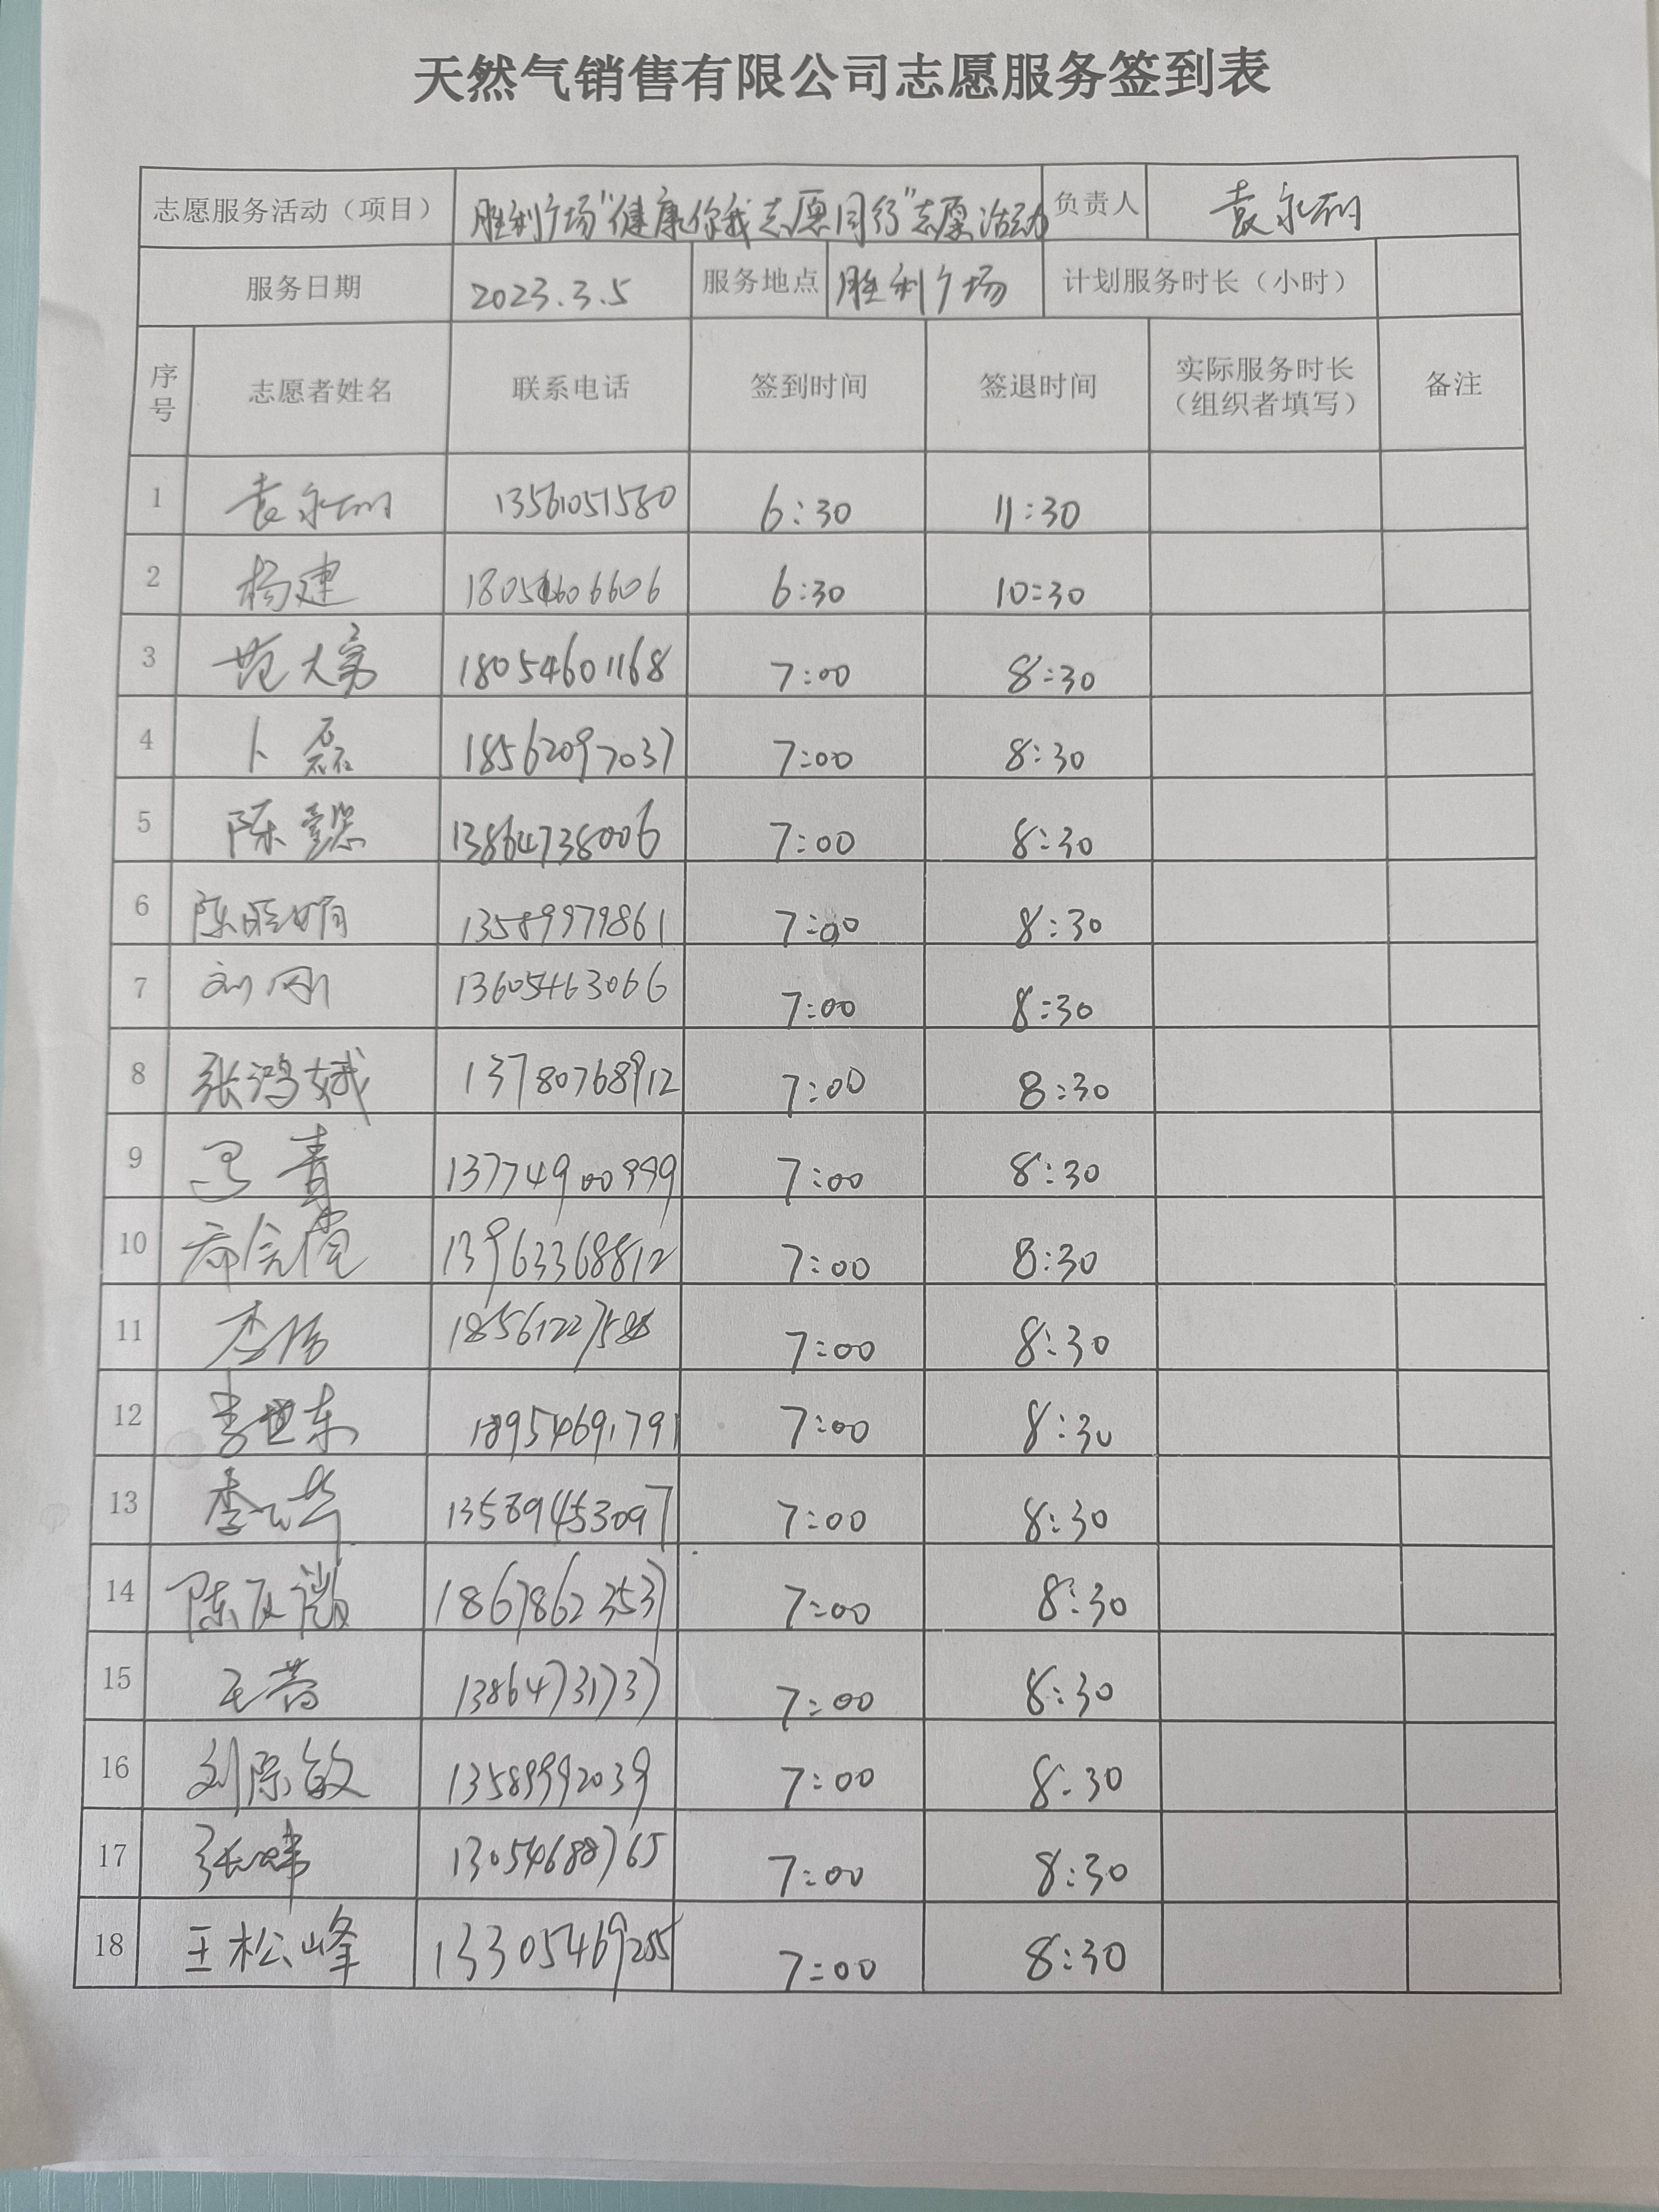 天然气销售有限公司志愿服务签到表
志愿服务活动（项目） 胜利广场"健康你我志愿同行"志愿活动 负责人 袁永丽
服务日期 2023.3.5 服务地点 胜利广场 计划服务时长（小时）
序号 志愿者姓名 联系电话 签到时间 签退时间 实际服务时长（组织者填写） 备注
1 袁永丽 13561051580 6:30 11:30
2 杨建 18054606606 6:30 10:30
3 范大勇 18054601168 7:00 8:30
4 卜磊 18562097037 7:00 8:30
5 陈懿 13864738006 7:00 8:30
6 陈晓娟 13589979861 7:00 8:30
7 刘刚 13605463066 7:00 8:30
8 张鸿娥 13780768912 7:00 8:30
9 青 13774900999 7:00 8:30
10 13963368812 7:00 8:30
11 李 7:00 8:30
12 李世东 18954691791 7:00 8:30
13 李 13589453097 7:00 8:30
14 陈 18678623537 7:00 8:30
15 王 13864731737 7:00 8:30
16 刘 敏 13589992039 7:00 8:30
17 张 13054688765 7:00 8:30
18 王松峰 13305469255 7:00 8:30